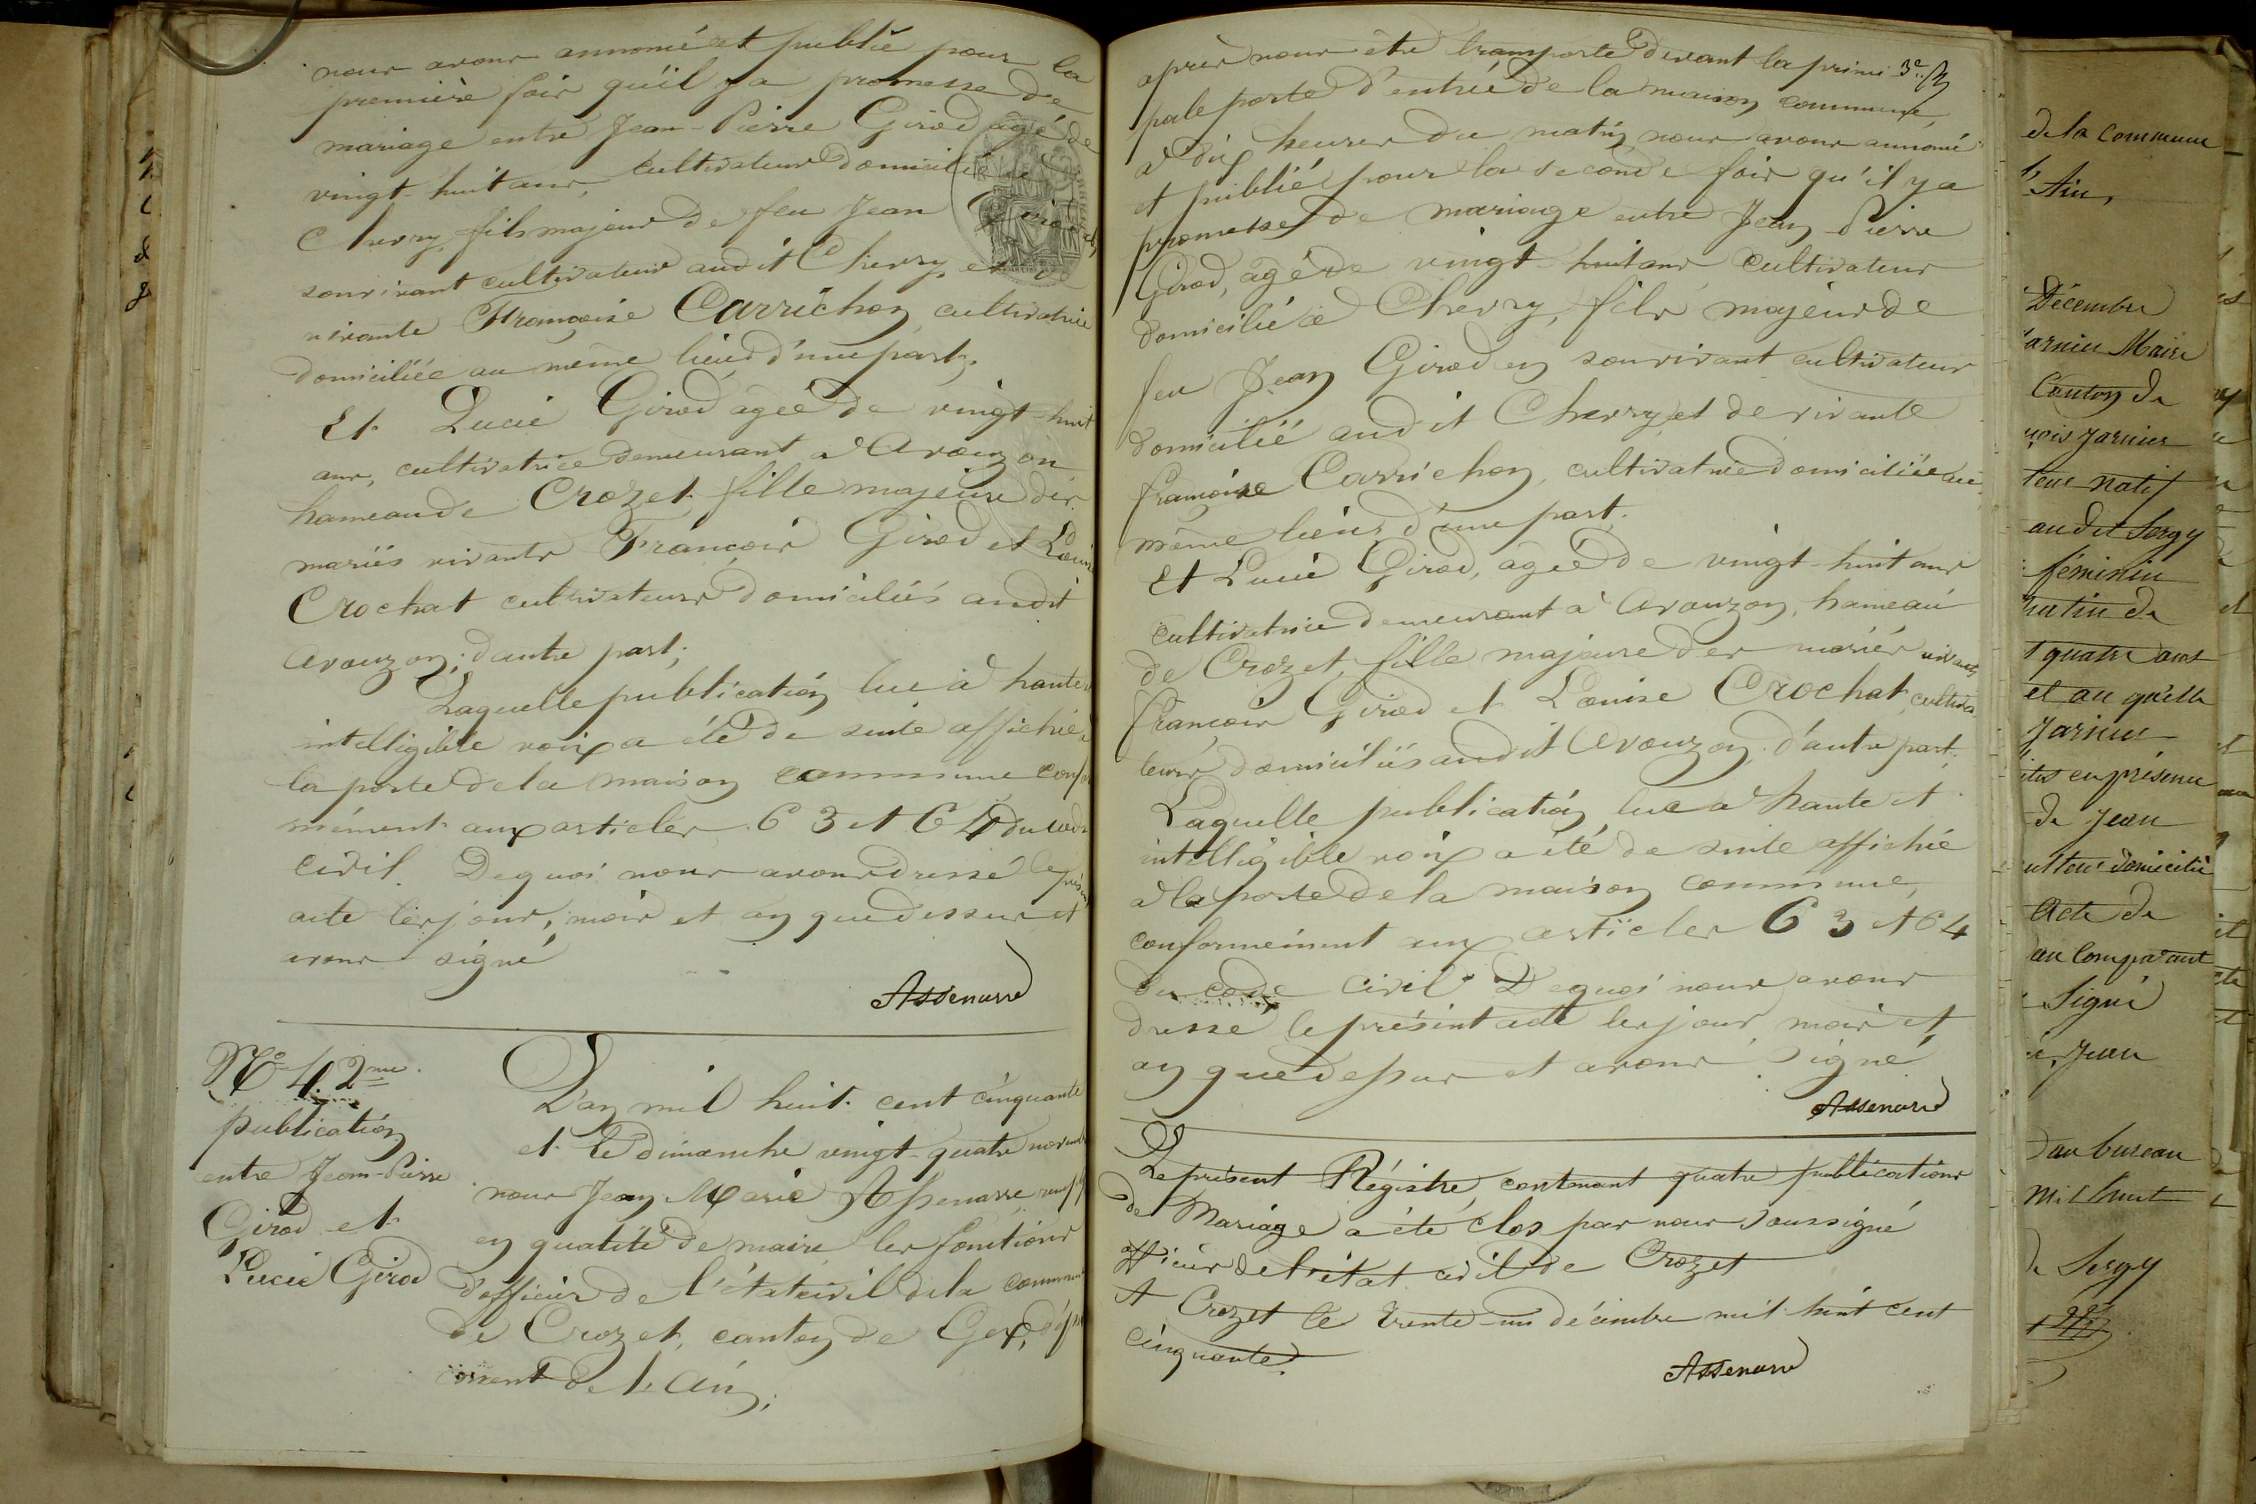 nous avons annoncé et publié pour la
première fois qu'il y a promesse de
mariage entre Jean-Pierre Girod agé de
vingt-huit ans, cultivateur domicilié à
Chevry, fils majeur de feu Jean Girod
survivant cultivateur audit Chevry, et
vivante Françoise Carrichon cultivatrice
domiciliée au même lieu, d'une part,
Et Lucie Girod agée de vingt-huit
ans, cultivatrice demeurant à Avouzon
hameau de Crozet, fille majeure des
mariés vivants François Girod et Louise
Crochat cultivateurs domiciliés audit
Avouzon; d'autre part;
Laquelle publication lue à haute
intelligible voix a été de suite affichée
la porte de la maison commune confor
mément aux articles 63 et 64 du code
civil. De quoi nous avons dressé le présent
acte les jour, mois et an que dessus et
avons signé
Assenare
No 4. 2me
publication
entre Jean-Pierre
Girod et
Lucie Girod
L'an mil huit cent cinquante
et le dimanche vingt-quatre novembre
nous Jean Marie Assenarre
en qualité de maire les fonctions
d'officier de l'état civil de la commune
de Crozet, canton de Gex,
de l'Ain,
3e
après nous être transporté devant la princi
pale porte d'entrée de la maison commune,
à dix heures du matin nous avons annoncé
et publié pour la seconde fois qu'il y a
promesse de mariage entre Jean Pierre
Girod, agé de vingt-huit ans cultivateur
domicilié à Chevry, fils majeur de
feu Jean Girod en survivant cultivateur
domicilié audit Chevry, et de vivante
françoise Carrichon, cultivatrice domiciliée au
même lieu, d'une part.
Et Lucie Girod, agée de vingt-huit ans
cultivatrice demeurant à Avouzon, hameau
de Crozet, fille majeure des mariés vivants
françois Girod et Louise Crochat, cultiva
teurs domiciliés audit Avouzon, d'autre part;
Laquelle publication lue à haute et
intelligible voix a été de suite affichée
à la porte de la maison commune,
conformément aux articles 63 et 64
du code civil. De quoi nous avons
dressé le présent acte les jour, mois et
an que dessus et avons signé
Assenare
Le présent Régistre, contenant quatre publications
de Mariage a été clos par nous soussigné
officier de l'état civil de Crozet
A Crozet le trente-un décembre mil huit cent
cinquante.
Assenare
de la Commune
l'Ain,
Décembre
Jarnier Maire
Canton de
Jarnier
natif
audit Sergy
féminin
matin de
quatre ans
et au qu'elle
Jarnier
en présence
de Jean
domicilié
Acte de
au comparant
Signé
Jean
au bureau
mil huit
de Sergy